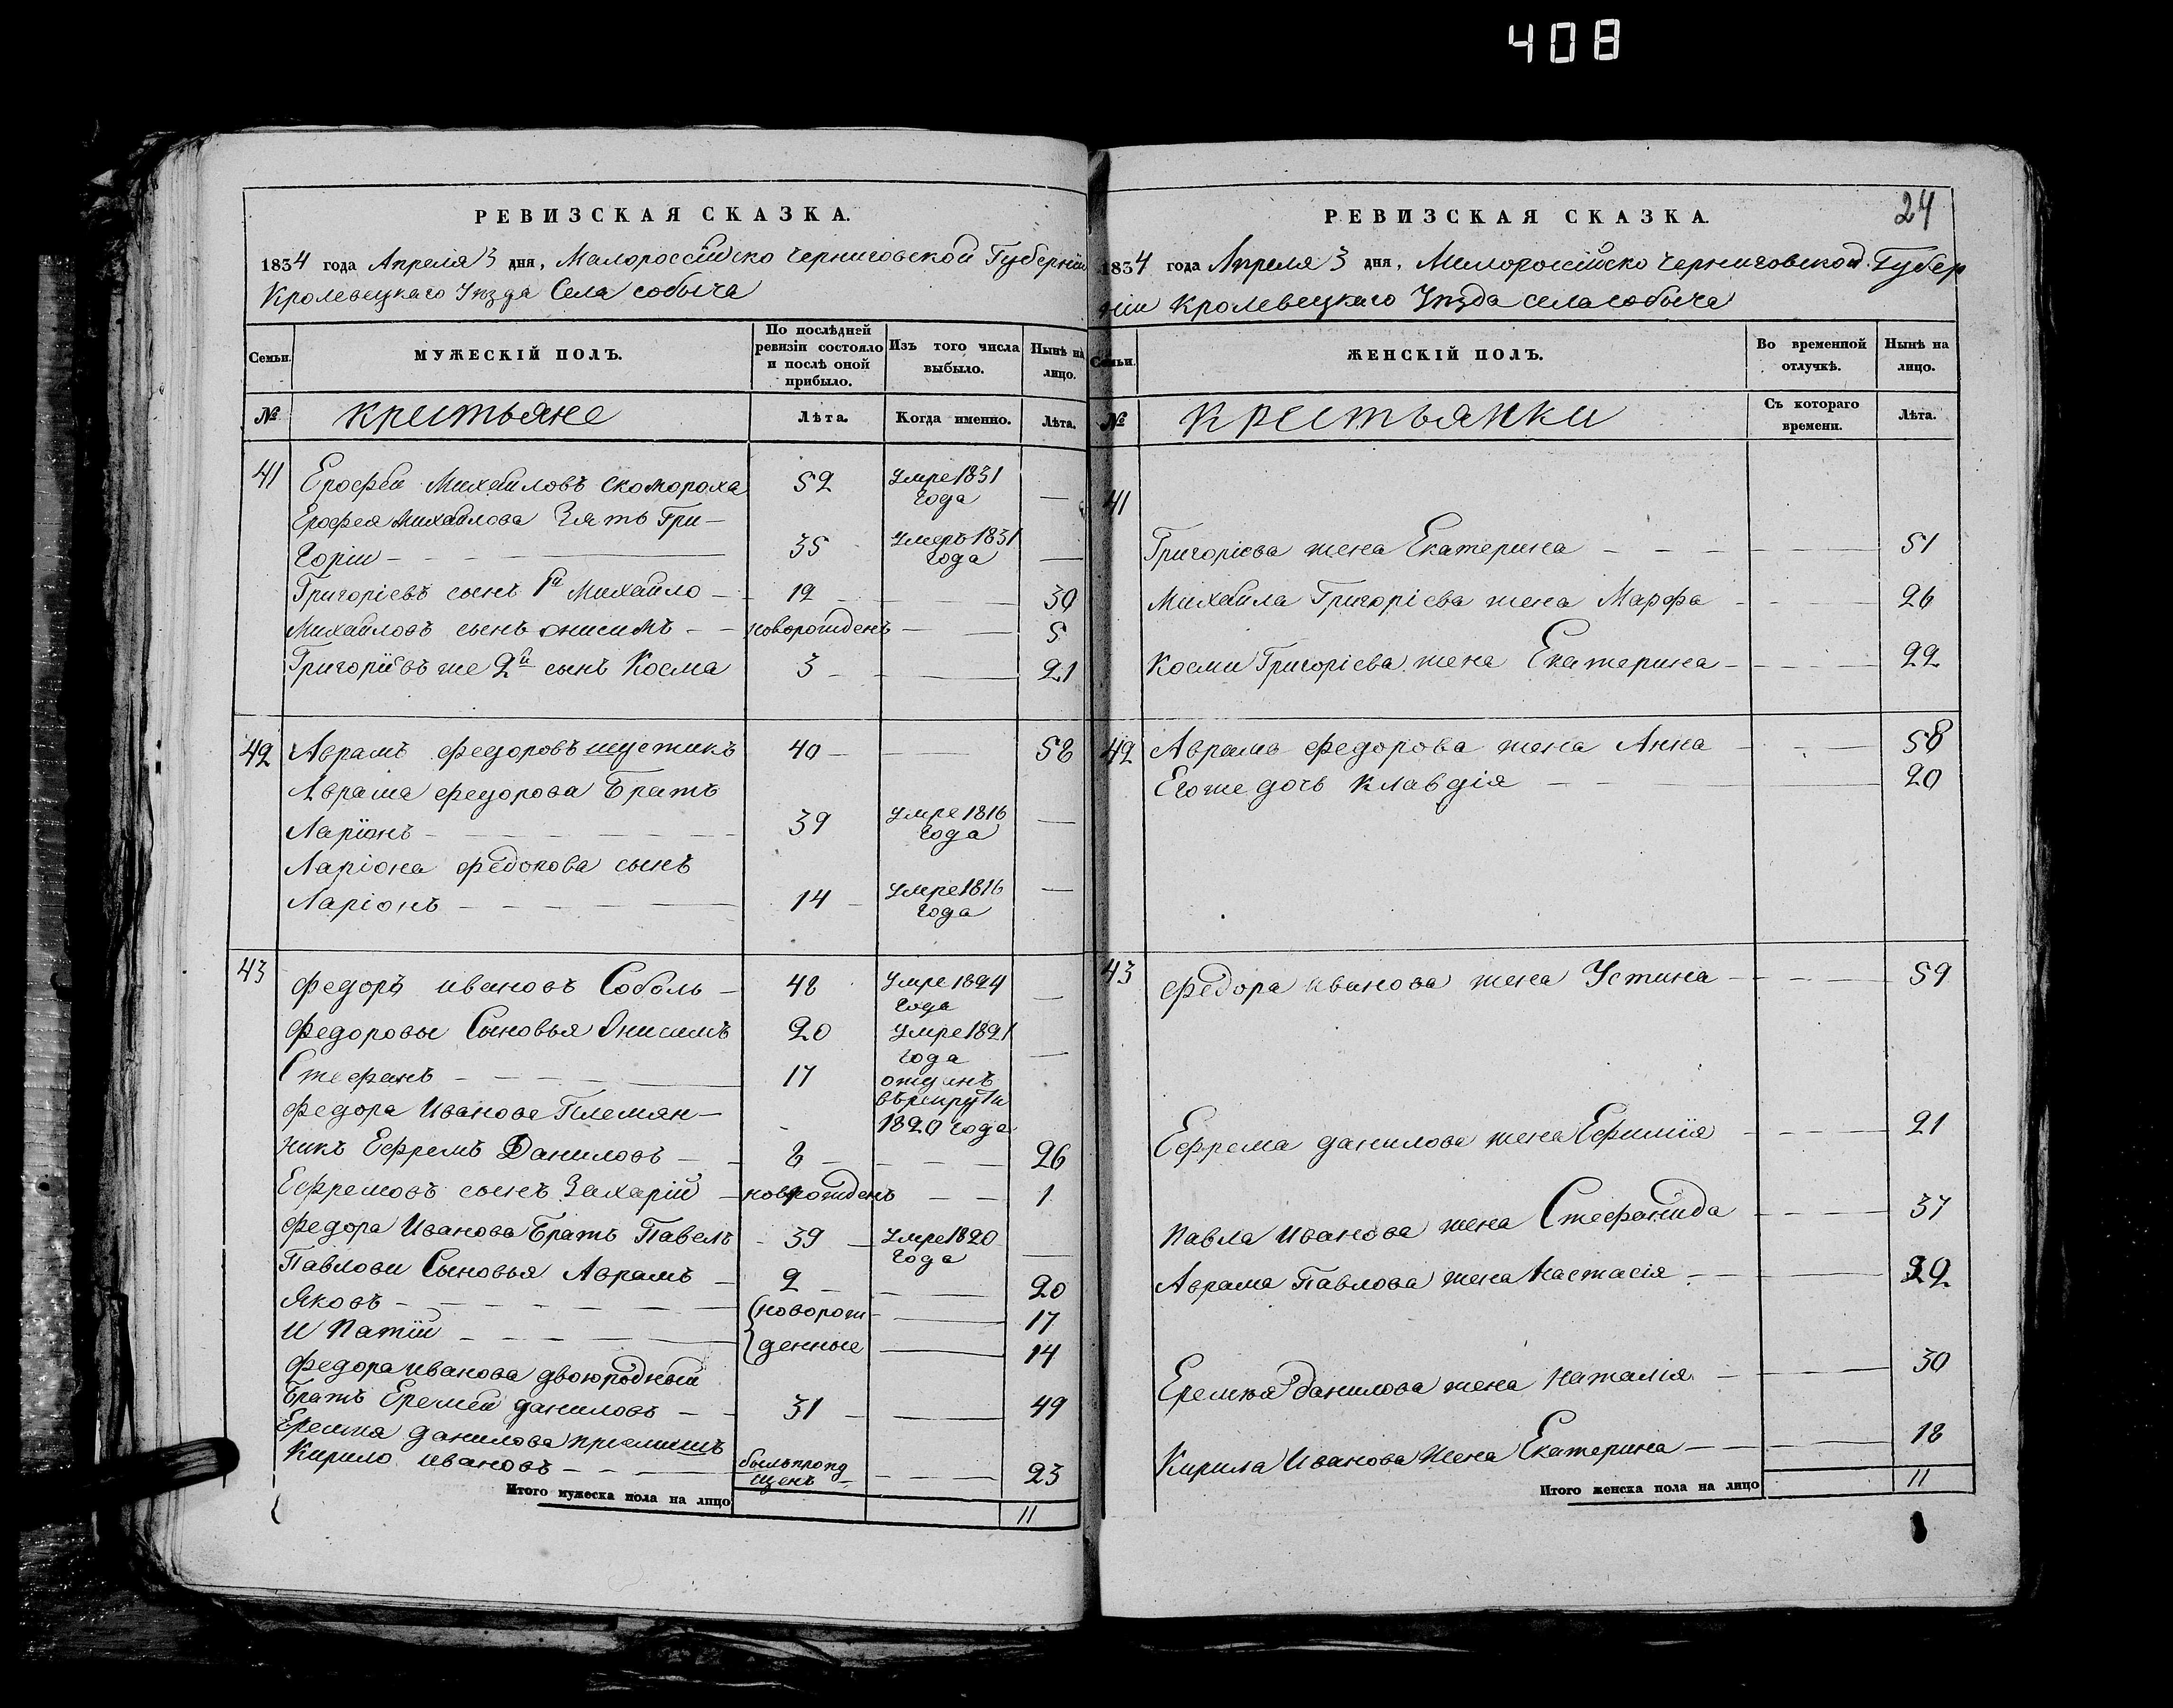 408
РЕВИЗСКАЯ СКАЗКА.
1834 года Апреля 3 дня, Малороссійско Черниговской Губерніи
Кролевецкаго Уѣзда Села собыча
Семьи.
МУЖЕСКІЙ ПОЛЪ.
По послѣдней ревизіи состояло и послѣ оной прибыло.
Изъ того числа выбыло.
Нынѣ на лицо.
№ крестьяне Лѣта. Когда именно. Лѣта.
41 Ерофей Михайловъ скомороха 52 Умре 1831 года —
Ерофея Михайлова Зять Гри-
горій — 35 Умеръ 1831 года —
Григоріевъ сынъ 1й Михайло — 12 — 30
Михайловъ сынъ онисимъ — новорожденъ — 5
Григоріевъ же 2й сынъ Косма 3 — 21
42 Аврамъ федоровъ шустикъ 40 — 58
Аврама федорова Братъ
Ларіонъ — 39 Умре 1816 года —
Ларіона федорова сынъ
Ларіонъ — 14 Умре 1816 года —
43 федоръ ивановъ Соболь — 48 Умре 1824 года —
федоровы Сыновья Онисимъ 20 Умре 1821 года —
Стефанъ — 17 отданъ въ рекруты 1820 года
федора Иванова Племян-
никъ Ефремъ Даниловъ — 8 — 26
Ефремовъ сынъ Захарій — новорожденъ — 1
федора Иванова Братъ Павелъ — 39 — Умре 1820 года —
Павлови Сыновья Аврамъ — 2 — 20
Яковъ — (новорож- — 17
И Патій — денные — 14
федора иванова двоюродный
Братъ Еремей даниловъ — 31 — 49
Еремея данилова приемишъ
Кирило ивановъ — былъ пропущенъ — 23
Итого мужеска пола на лицо 11
24
РЕВИЗСКАЯ СКАЗКА.
1834 года Апреля 3 дня, Малоросійско Черниговской Губер
ніи Кролевецкаго Уѣзда села собыча
Семьи.
ЖЕНСКІЙ ПОЛЪ.
Во временной отлучкѣ.
Нынѣ на лицо.
№ крестьянки Съ котораго времени. Лѣта.
41
Григоріева жена Екатерина — 51
Михайла Григорієва жена Марфа — 26
Косми Григорієва жена Екатерина — 22
42 Аврама федорова жена Анна — 58
Егоже дочь клавдія — 20
43 федора иванова жена Устина — 59
Ефрема данилова жена Ефимія — 21
Павла иванова жена Стефанида — 37
Аврама Павлова жена Настасія — 22
Еремѣя данилова жена наталія — 30
Кирила Иванова жена Екатерина — 18
Итого женска пола на лицо 11